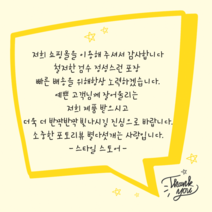 저희 쇼핑몰을 이용해 주셔서 감사합니다
철저한 검수 정성스런 포장
빠른 배송을 위해항상 노력하겠습니다.
예쁜 고객님께 잘어울리는
저희 제품 받으시고
더욱 더 반짝반짝 빛나시길 진심으로 바랍니다.
소중한 포토리뷰 별다섯개는 사랑입니다.
- 스타일 스토어 -
Thank you